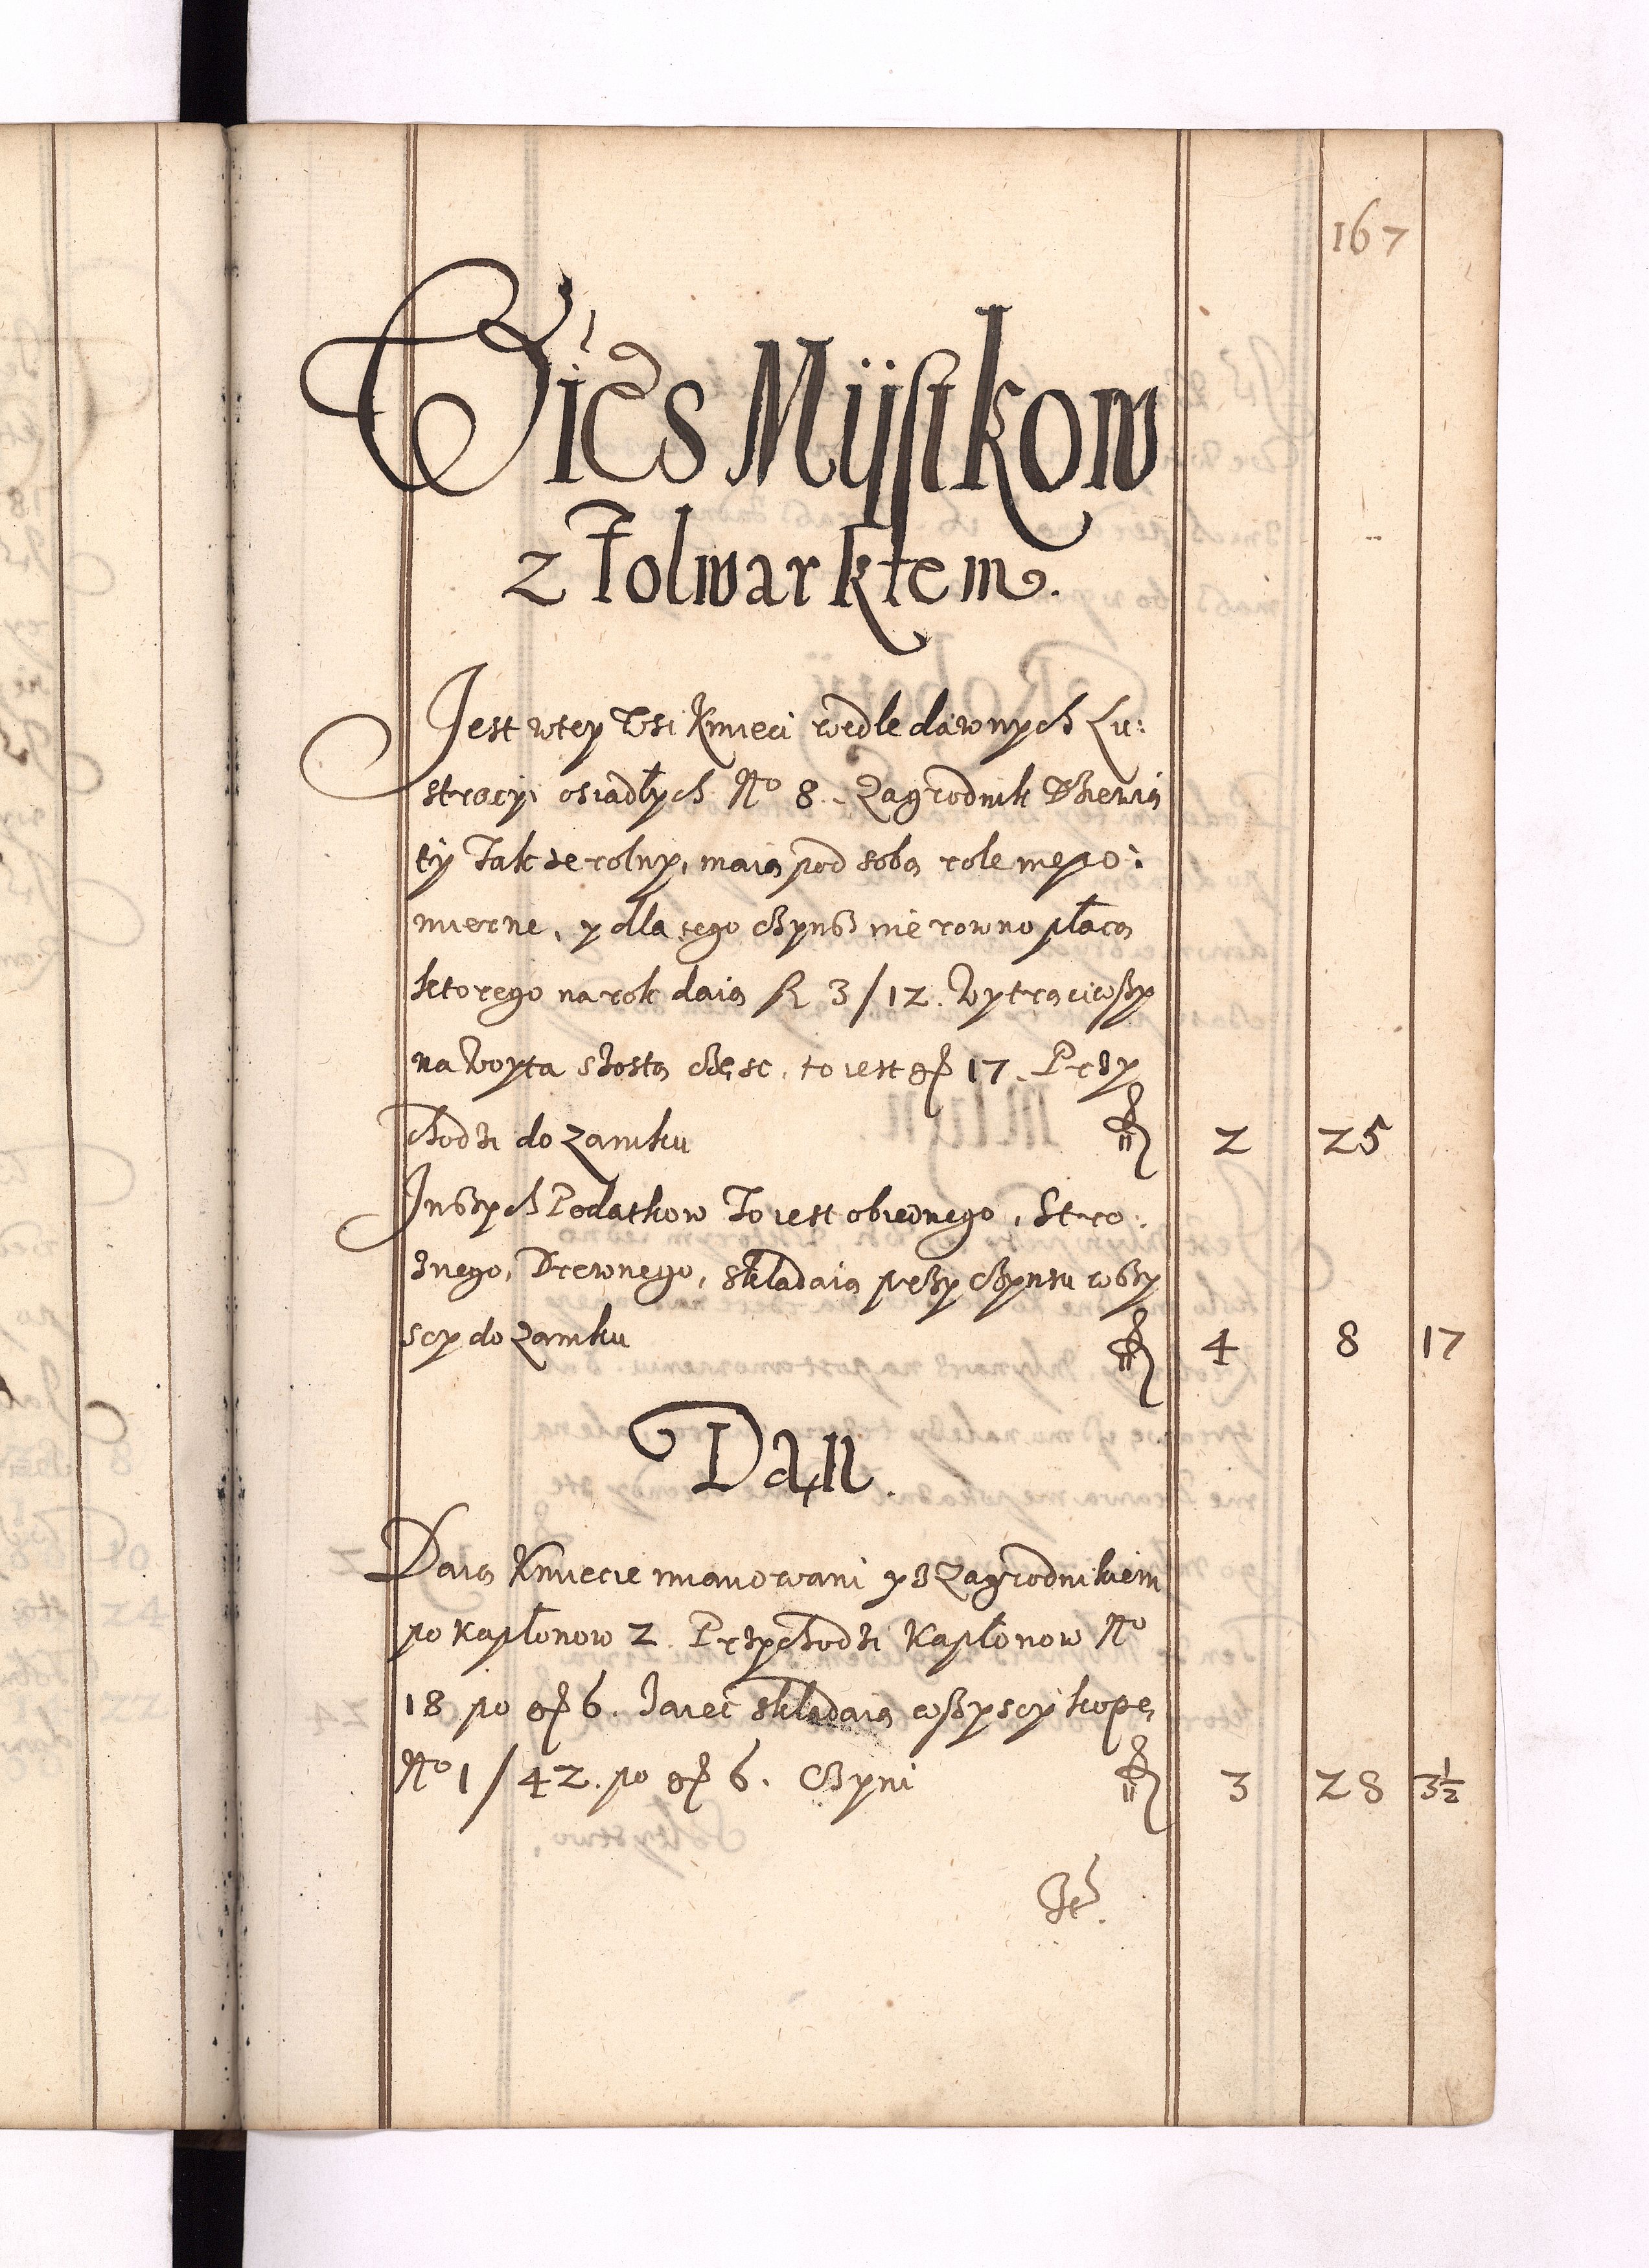 167
Wieś Mijstkow
z Folwarkiem.
Jest wtey Wsi Kmieci wedle dawnych Lu:
stracyi osiadłych No 8. Zagrodnik Dziewią
ty Takze rolny, maią pod sobą role niepo:
mierne, y dla tego czynsz nie rowno płacą
ktorego na rok daią fl 3/12. Wytrąciwszy
na Woyta szostą część, to iest gr 17. Przy
chodzi do Zamku fl 2 25
Inszych Podatkow To iest obiednego, Stro:
znego, Drewnego, składaią przy czynszu wszy
scy do Zamku fl 4 8 17
Dań.
Daią Kmiecie mianowani y z Zagrodnikiem
po Kapłonow 2. Przychodzi Kapłonow No
18 po gr 6. Jaiec składaią wszyscy kopę
No 1/42. po gr 6. Czyni fl 3 28 3½